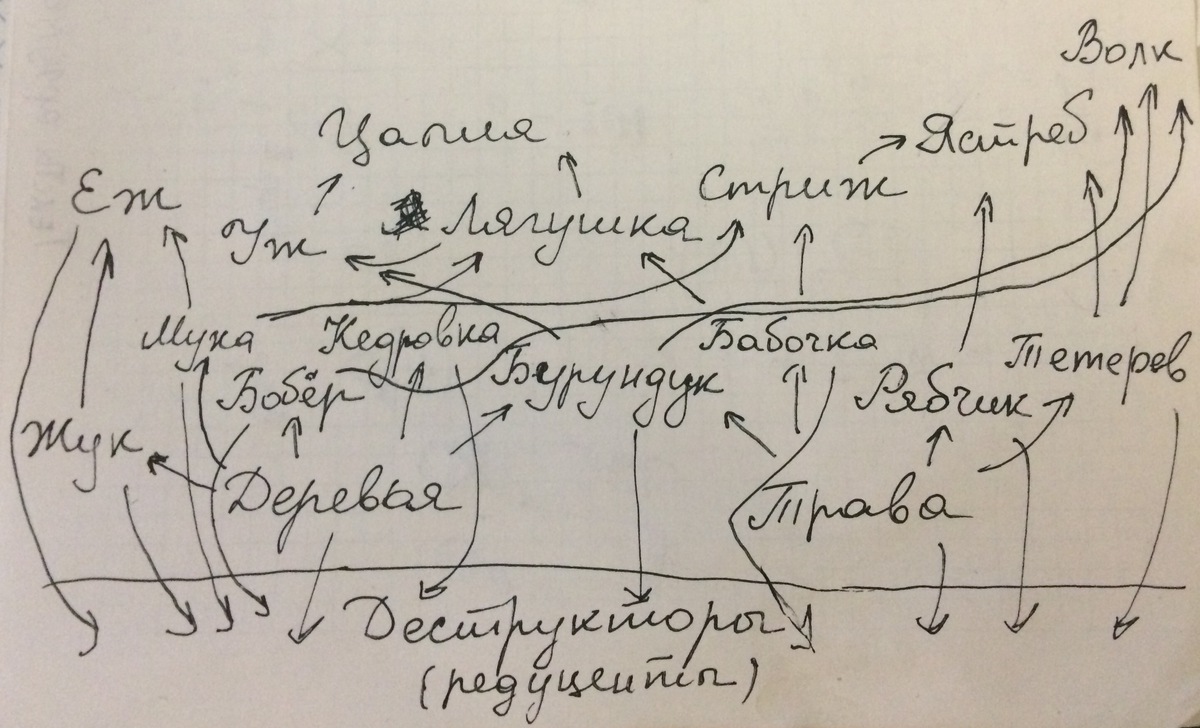 Волк
Цапля
Ястреб
Ёж
Стриж
Лягушка
Уж
Муха
Кедровка
Бабочка
Тетерев
Бобёр
Бурундук
Рябчик
Жук
Деревья
Трава
Деструкторы
(редуценты)